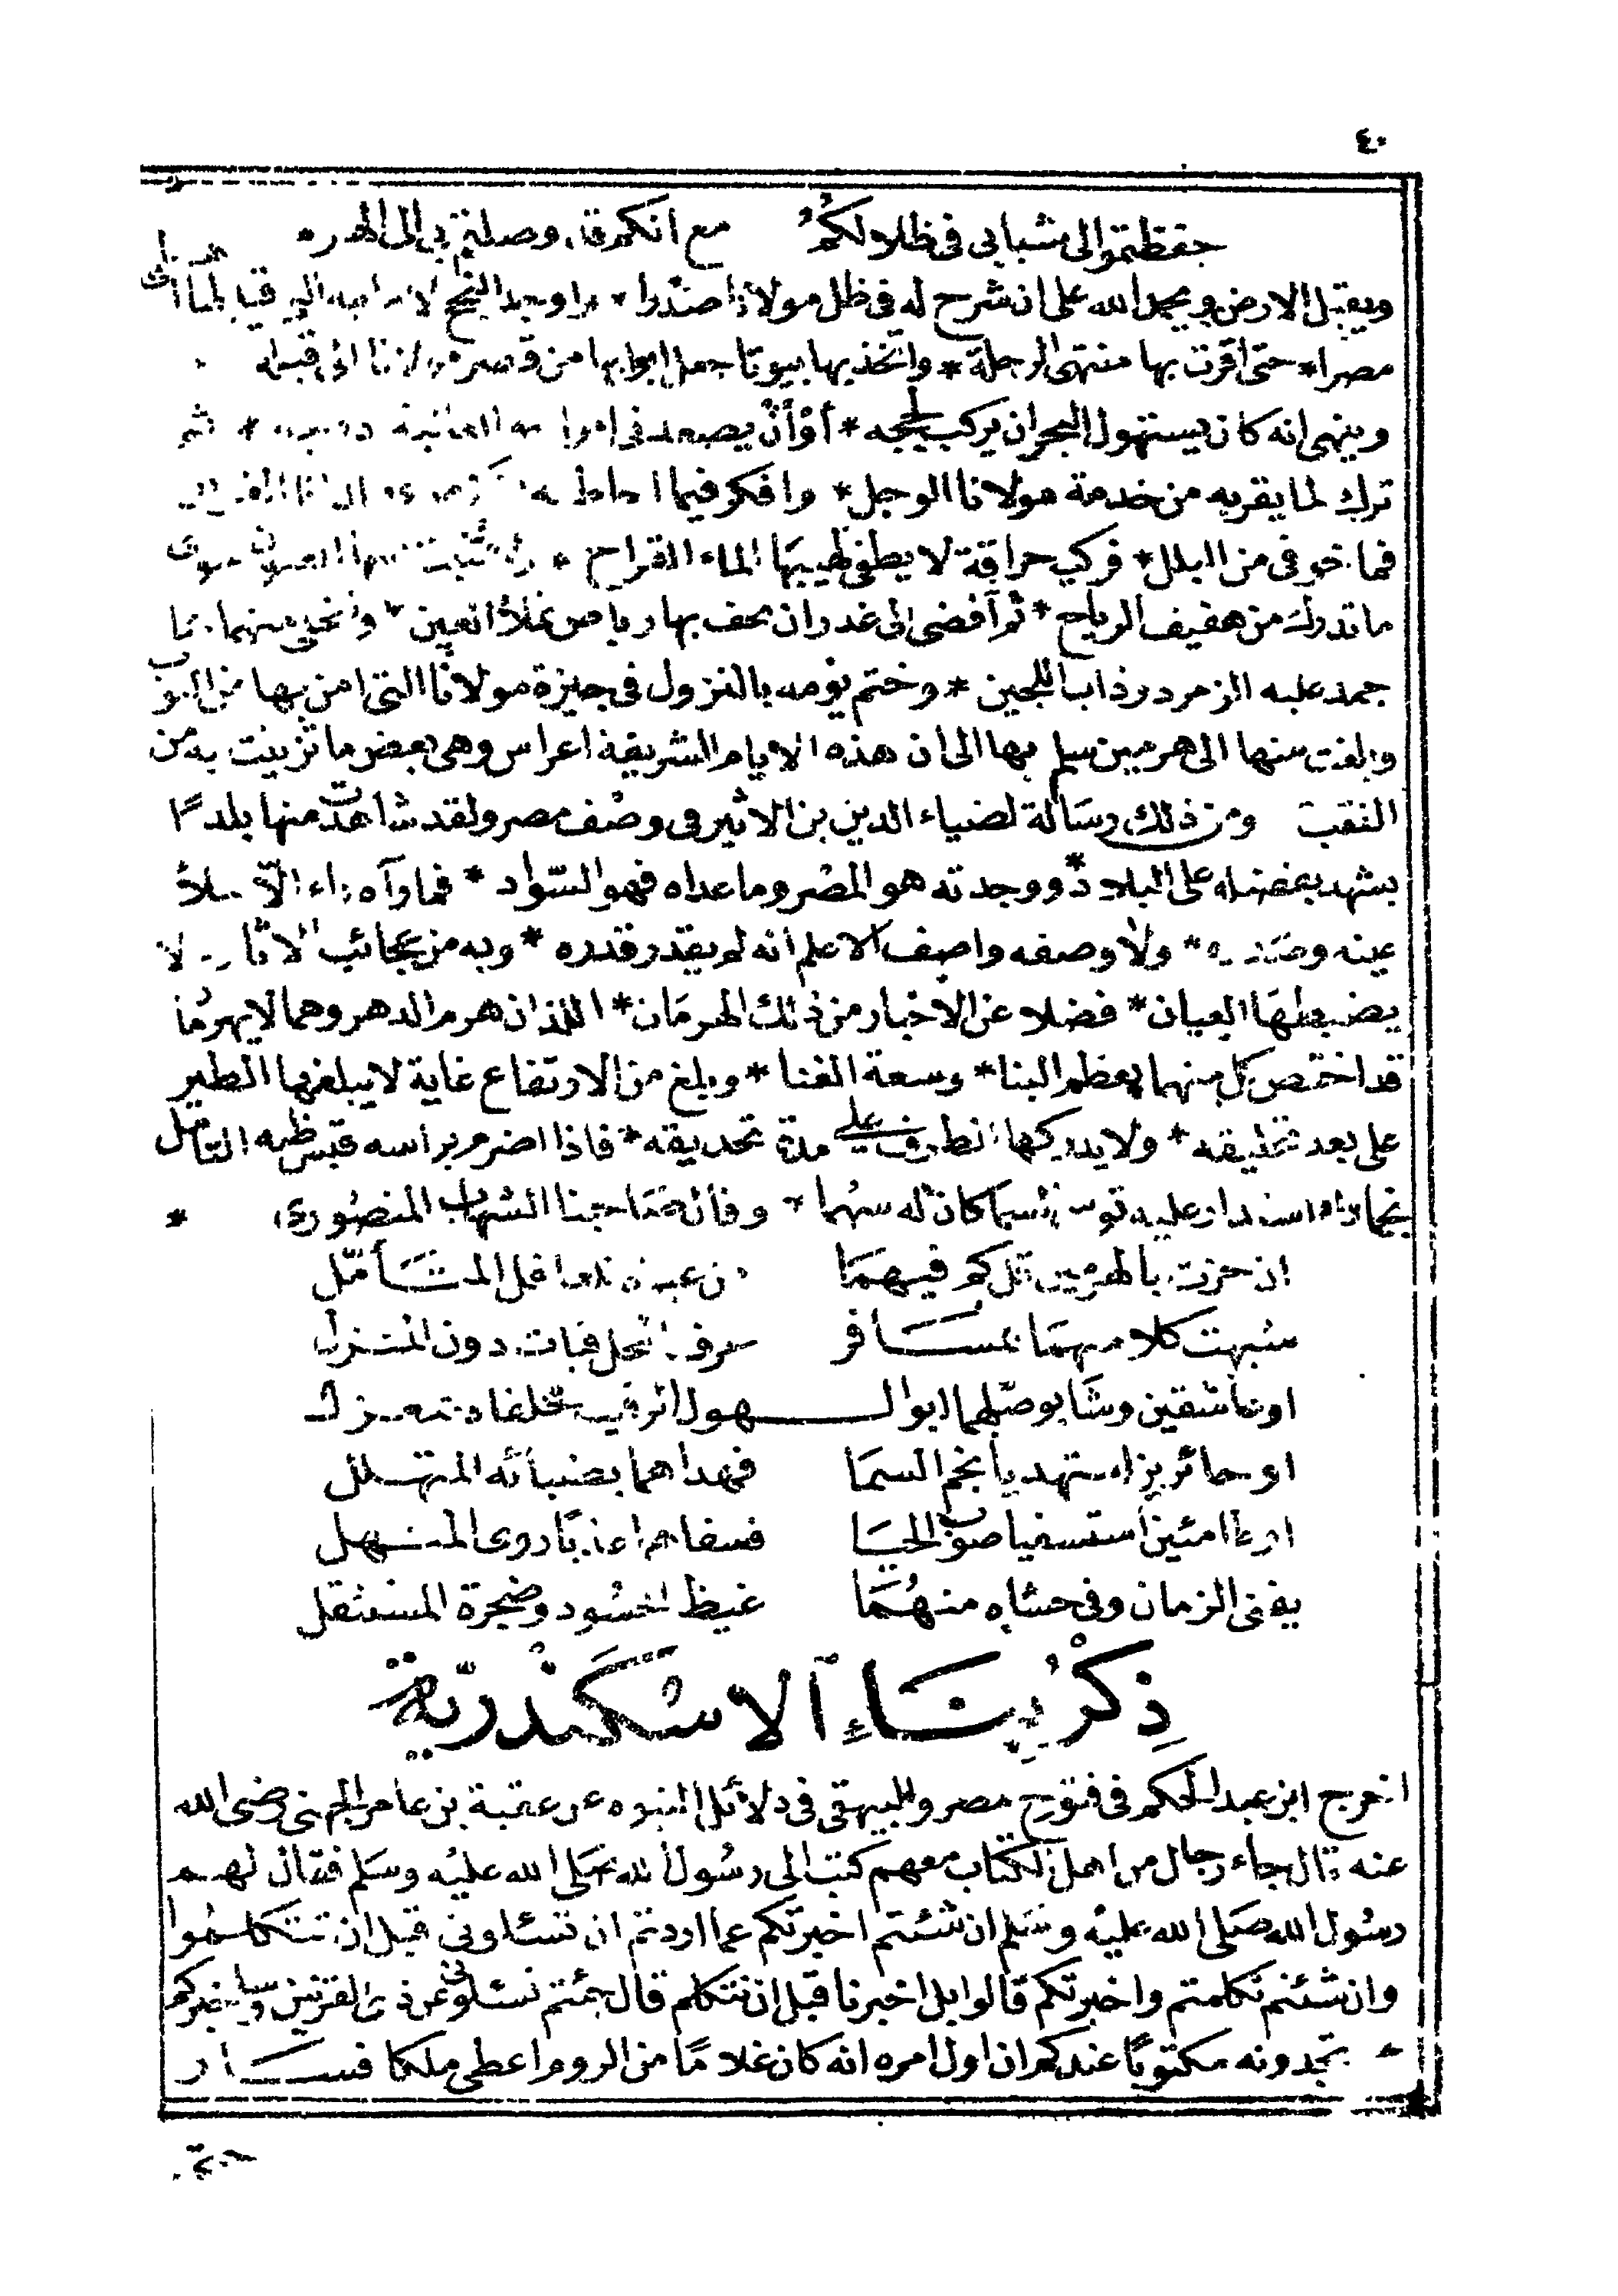 ٤٠
حفظتموالى شبابى فى ظلالكم مع انكم قد وصلتم بى الى الهرم
ويقبل الارض ويحمد الله على ان شرح له فى ظل مولانا صدرا *
مصرا * حتى اقرت بها منتهى الرحلة * واتخذ بها بيوتا جعل ابوابها من قصر مولانا الى قبلة
وينهى انه كان يستهول البحر ان يركب لججه * أوأن يصعد فى * ثم
ترك لما يقربه من خدمة مولانا الوجل * وافكر فيما احاط به
فما خوفى من البلل * فركب حراقة لا يطفى لهيبها الماء القراح * سوى
ما تدرك من هفيف الرياح * ثم أفضى الى غدران تحف بها رياض تملأ العين *
جمد عليه الزمرد وذاب اللجين * وختم يومه بالنزول فى جيزة مولانا التى امن بها من
وبلغت سنها الى هرمين سلم بها الى ان هذه الايام الشريفة اعراس وهى بعض ما تزينت به من
النقب ومن ذلك رسالة لضياء الدين بن الاثير فى وصف مصر ولقد شاهدت منها بلدًا
يشهد بفضله على البلاد * ووجدته هو المصر وما عداه فهو السواد * فما رآه راء الا ملأ
عينه وصدره * ولا وصفه واصف الا علم انه لم يقدر قدره * وبه من عجائب الاثار لا
يضبطها العيان * فضلا عن الاخبار من ذلك الهرمان * اللذان هرم الدهر وهما لا يهرما
قد اختص كل منهما بعظم البنا * وسعة الفنا * وبلغ من الارتفاع غاية لا يبلغها الطير
على بعد تحليقه * ولا يدركها الطرف على مدة تحديقه * فاذا اضرم براسه قبس ظنه المتأمل
نجما واذا استدار عليه قوس السما كان له سهما * وقال صاحبنا الشهاب المنصورى *
ان جزت بالهرمين قل كم فيهما من عبرة للعاقل المتأمل
شبهت كلا منهما بمسافر عرف المحل فبات دون المنزل
اوعاشقين وشا بوصلهما ابوالـهول الرقيب فخلفاه بمعزل
او حائرين استهديا نجم السما فهداهما بضيائه المتهلل
اوظامئين استسقيا صوب الحيا فسقاهما عذبًا روى المنهل
يفنى الزمان وفى حشاه منهما غيظ الحسود وضجرة المستثقل
ذِكْرُ بِنَاءِ الاسْكَنْدَرِيَّةِ
اخرج ابن عبد الحكم فى فتوح مصر والبيهقى فى دلائل النبوه عن عقبة بن عامر الجهنى رضى الله
عنه قال جاء رجال من اهل الكتاب معهم كتب الى رسول الله صلى الله عليه وسلم فقال لهم
رسول الله صلى الله عليه وسلم ان شئتم اخبرتكم عما اردتم ان تسئلونى قبل ان تتكلموا
وان شئتم تكلمتم واخبرتكم قالوا بل اخبرنا قبل ان نتكلم قال جئتم تسئلونى عن ذى القرنين وساخبركم
تجدونه مكتوبًا عندكم ان اول امره انه كان غلامًا من الروم اعطى ملكا فسار